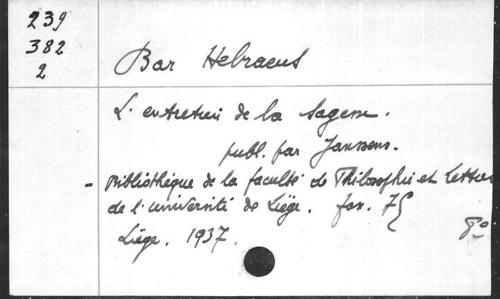 239
382
2
Bar Hebraeus
L'entretien de la sagesse.
publ. par Janssens.
- Bibliothèque de la faculté de Philosophie et Lettres
de l'université de Liège. fasc. 75
Liège. 1937.